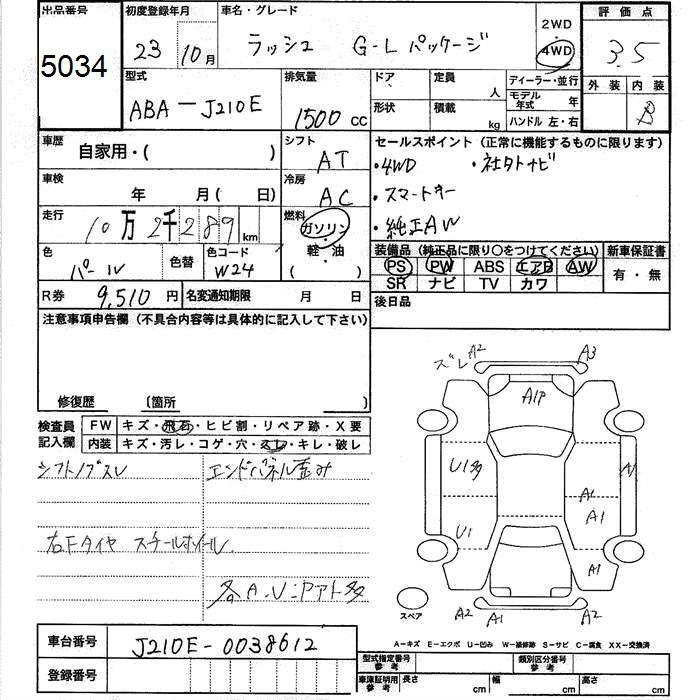 出品番号 初度登録年月 車名・グレード 2WD 評価点
5034 23 10月 ラッシュ G-L パッケージ 4WD 3.5
型式 排気量 ドア 定員 人 ディーラー・並行 外装 内装
ABA-J210E 1500 cc 形状 積載 kg モデル年式 年 B
ハンドル 左・右
車歴 自家用・( ) シフト AT セールスポイント(正常に機能するものに限ります)
・4WD ・社外ナビ
車検 年 月( 日) 冷房 AC ・スマートキー
走行 10万2千289km 燃料 ガソリン・軽・油 ( ) ・純正AW
色 パール 色替 色コード W24 装備品(純正品に限り○をつけてください) 新車保証書
PS PW ABS エアB AW 有・無
SR ナビ TV カワ
R券 9,510円 名変通知期限 月 日 後日品
注意事項申告欄(不具合内容等は具体的に記入して下さい)
修復歴 〔箇所 〕
検査員記入欄 FW キズ・飛石・ヒビ割・リペア跡・X要
内装 キズ・汚レ・コゲ・穴・スレ・キレ・破レ
シフトノブスレ エンドパネル歪み
右Fタイヤ スチールホイール
各A・U:Pアト多
ズレ A2 A3
A1P
U1多 A1
A1
U1 A1
A1
スペア A2 A1 A2
A-キズ E-エクボ U-凹み W-補修跡 S-サビ C-腐食 XX-交換済
車台番号 J210E-0038612
登録番号
型式指定番号 参考 類別区分番号 参考
車庫証明用 参考 長さ cm 幅 cm 高さ cm